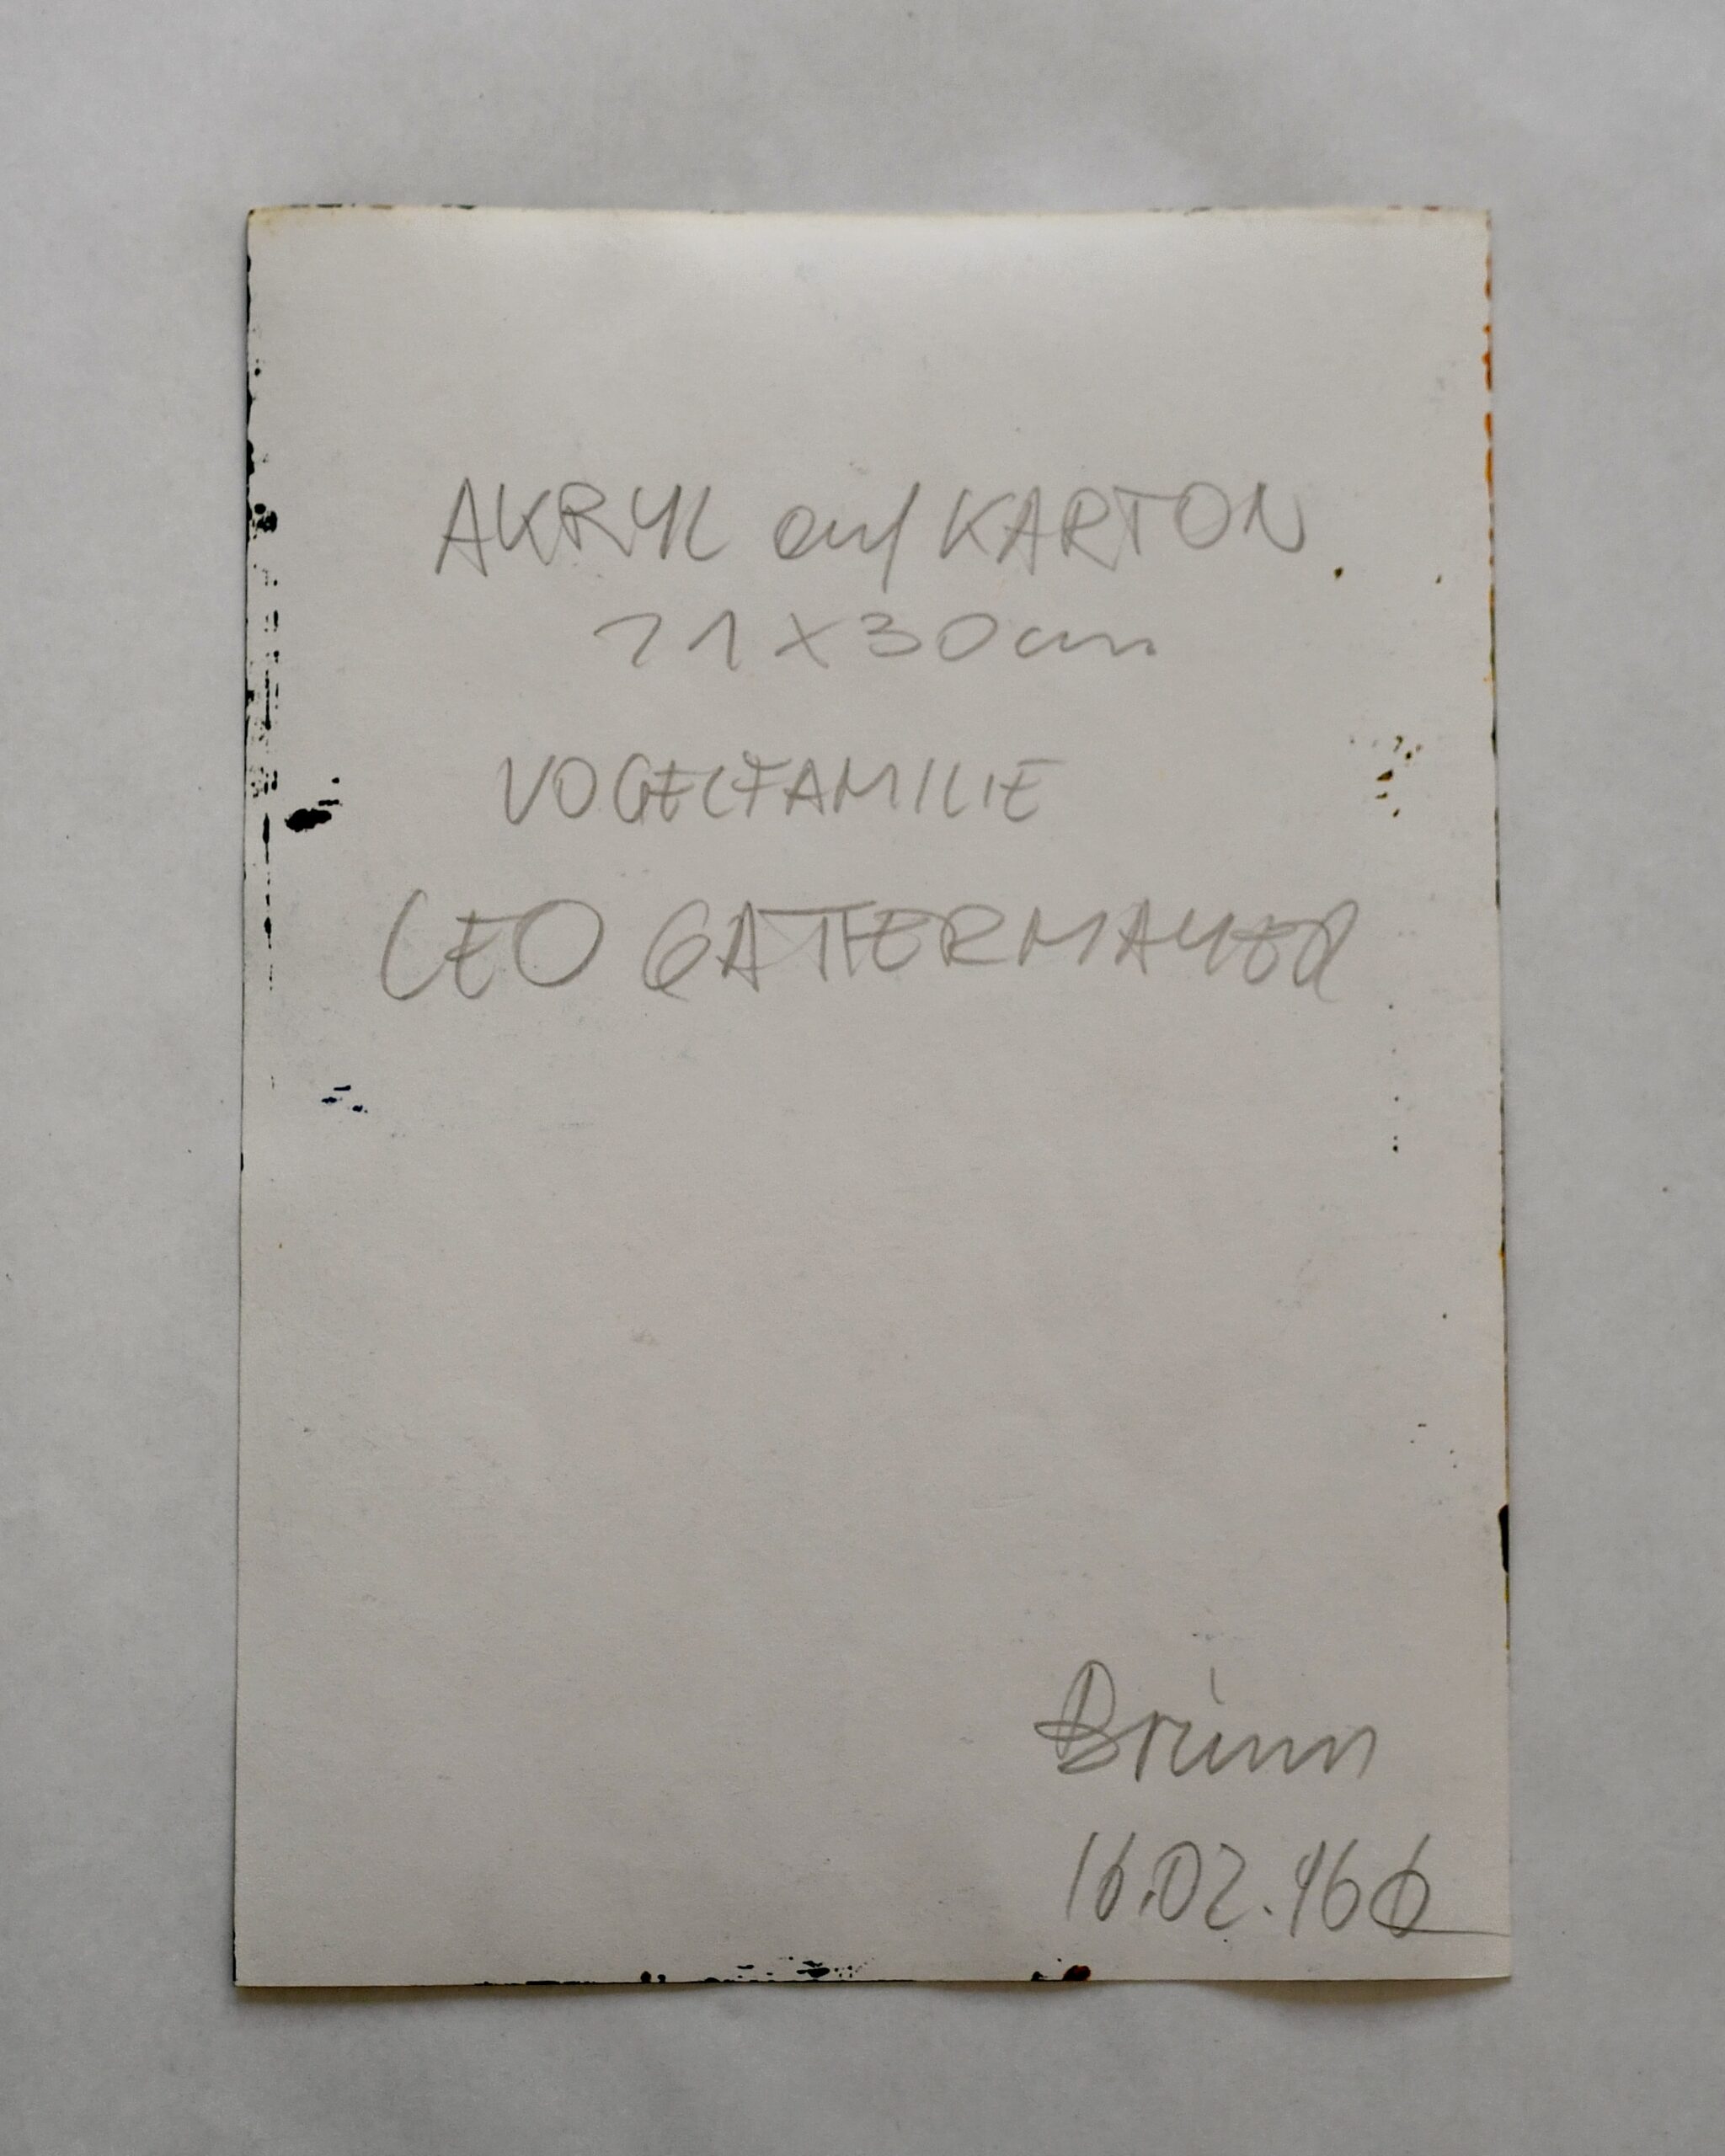 AKRYL auf KARTON
21 x 30 cm
VOGELFAMILIE
LEO GATTERMAYER
Brünn
16.02.1966